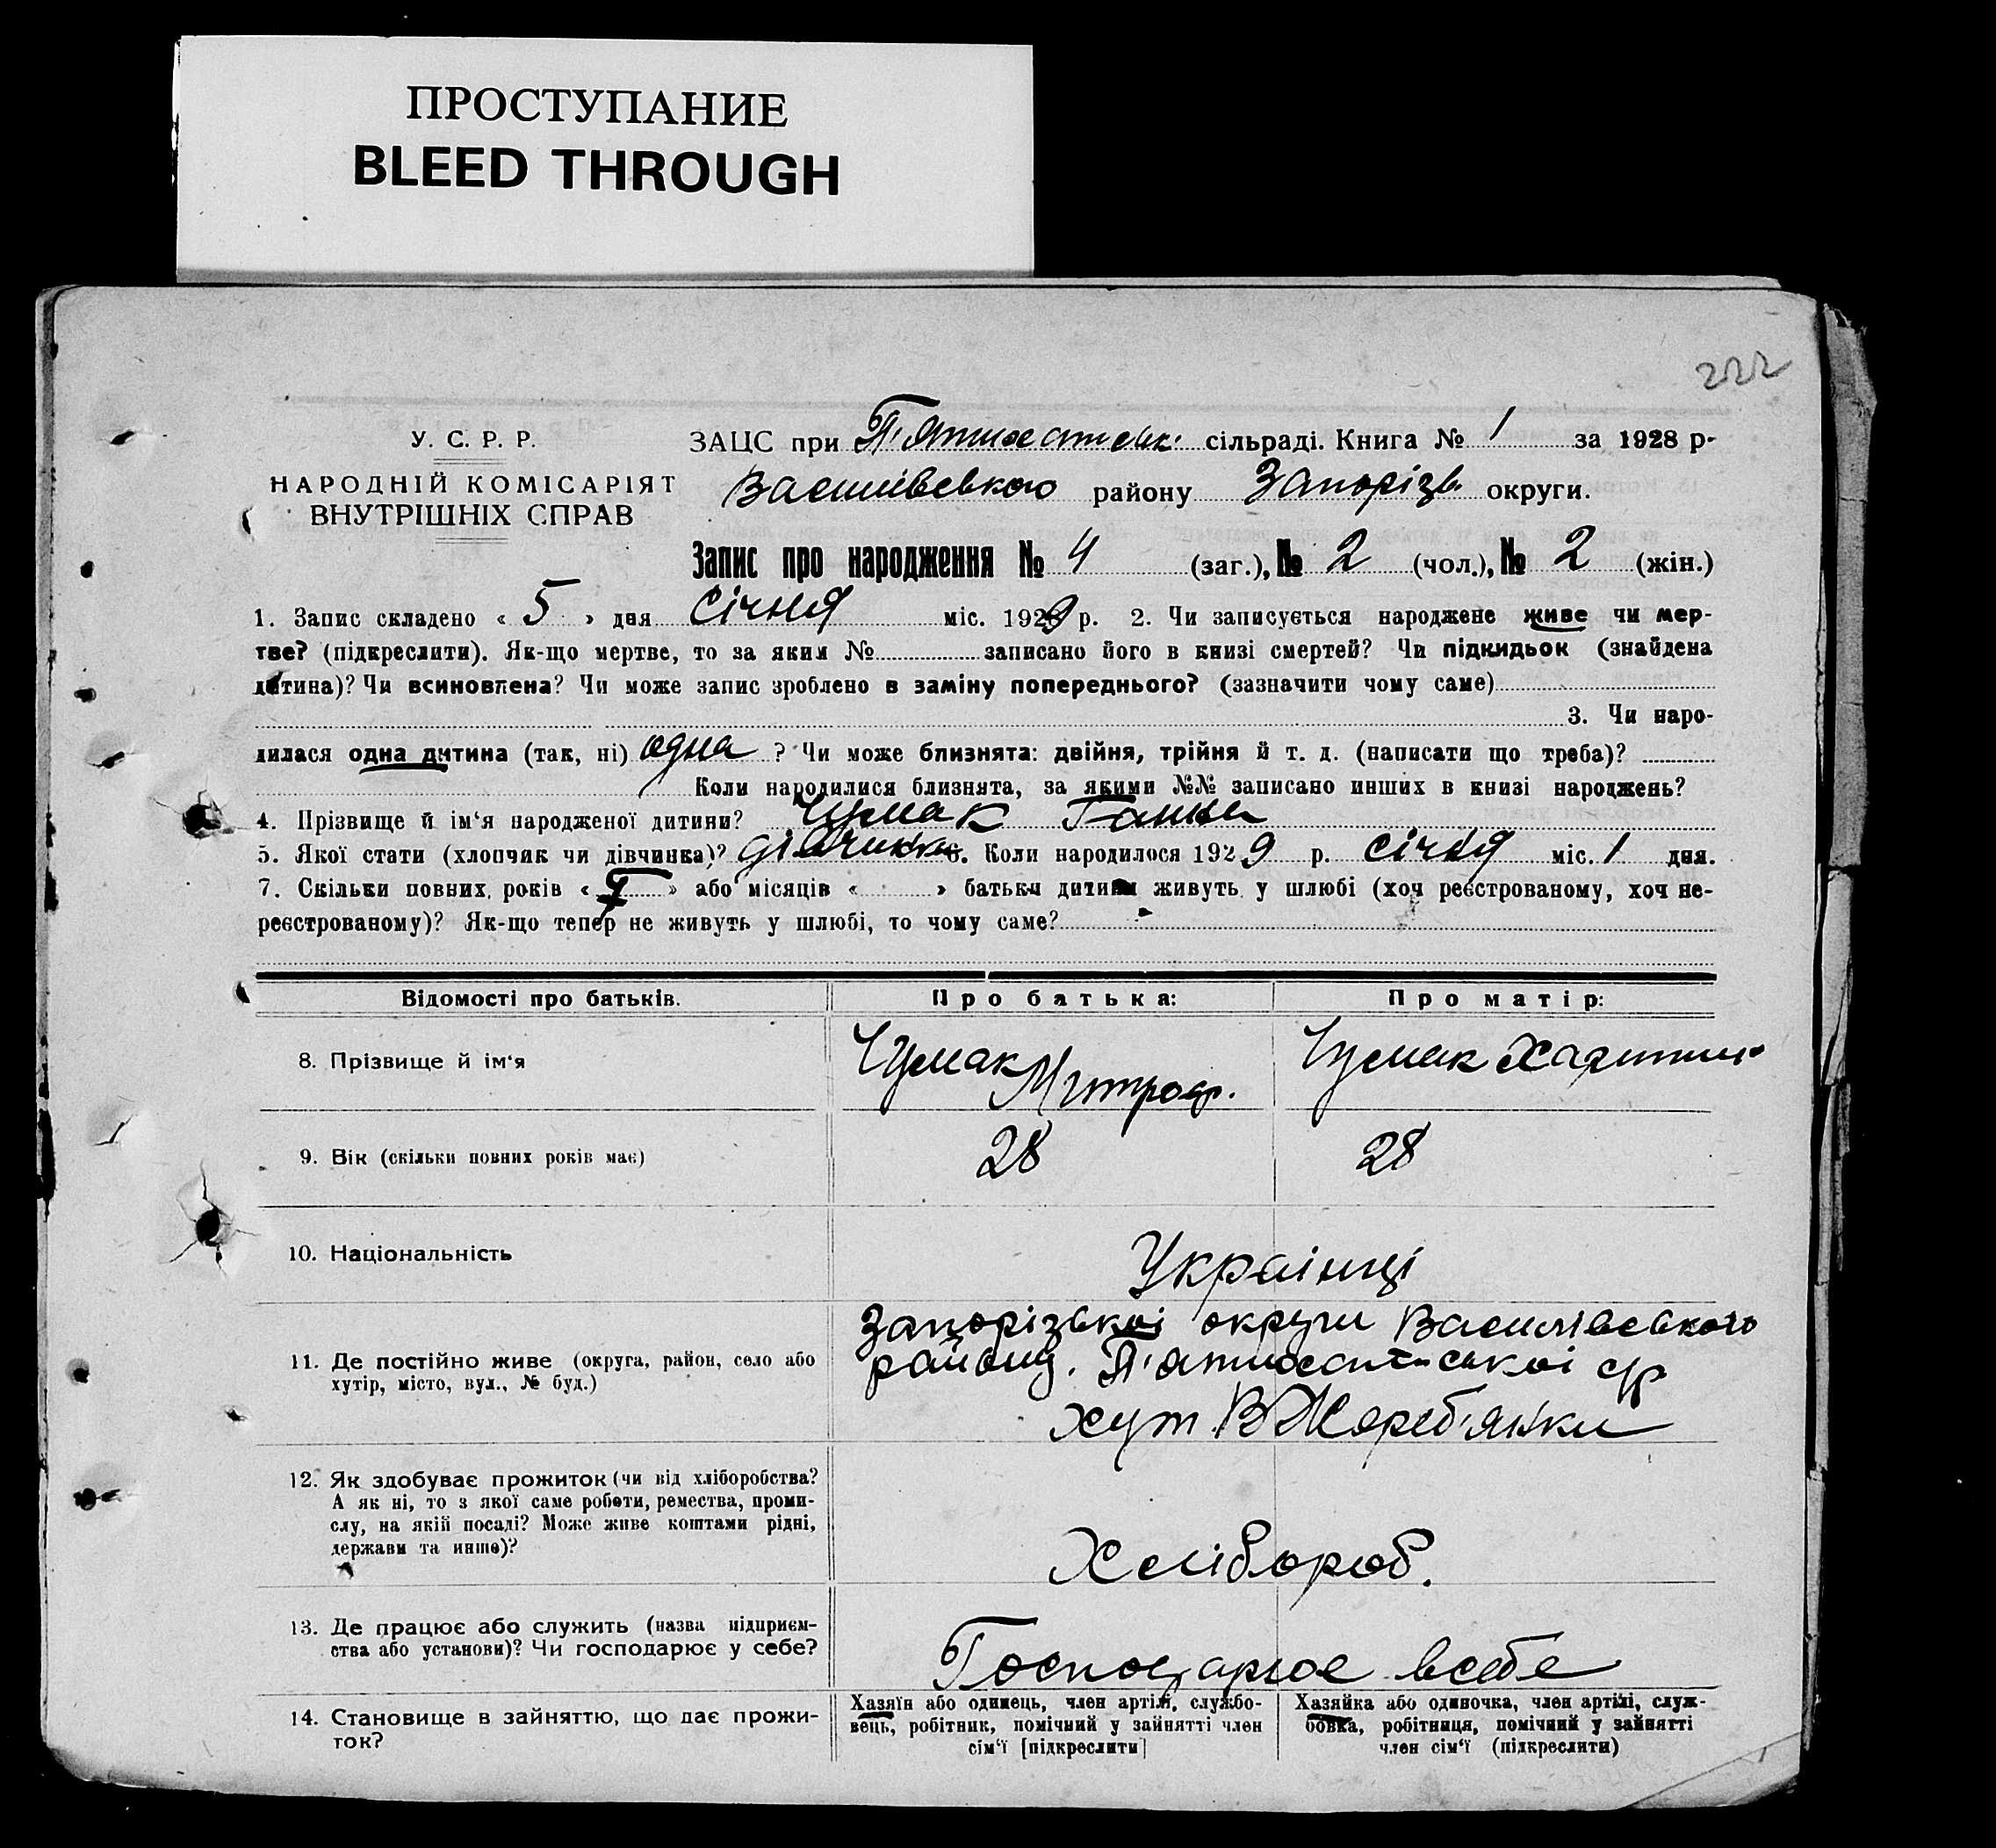 ПРОСТУПАНИЕ
BLEED THROUGH
222
У. С. Р. Р.
НАРОДНІЙ КОМІСАРІЯТ
ВНУТРІШНІХ СПРАВ
ЗАЦС при П'ятихатськ. сільраді. Книга № 1 за 1928 р.
Василівського району Запорізь округи.
Запис про народження № 4 (заг.), № 2 (чол.), № 2 (жін.)
1. Запис складено « 5 » дня Січня міс. 1929 р. 2. Чи записується народжене живе чи мер-
тве? (підкреслити). Як-що мертве, то за яким № записано його в книзі смертей? Чи підкидьок (знайдена
дитина)? Чи всиновлена? Чи може запис зроблено в заміну попереднього? (зазначити чому саме)
3. Чи наро-
дилася одна дитина (так, ні) одна ? Чи може близнята: двійня, трійня й т. д. (написати що треба)?
Коли народилися близнята, за якими №№ записано инших в книзі народжень?
4. Прізвище й ім'я народженої дитини? Чумак Ганна
5. Якої стати (хлопчик чи дівчинка)? дівчинка 6. Коли народилося 1929 р. січня міс. 1 дня.
7. Скільки повних років « » або місяців « » батьки дитини живуть у шлюбі (хоч реєстрованому, хоч не-
реєстрованому)? Як-що тепер не живуть у шлюбі, то чому саме?
Відомості про батьків. Про батька: Про матір:
8. Прізвище й ім'я Чумак Митроф. Чумак Харитина
9. Вік (скільки повних років має) 28 28
10. Національність Українці
11. Де постійно живе (округа, район, село або
хутір, місто, вул., № буд.)
Запорізької округи Василівського
району. П'ятихатської с/р
хут. В Жереб'янки
12. Як здобуває прожиток (чи від хліборобства?
А як ні, то з якої саме роботи, ремества, проми-
слу, на якій посаді? Може живе коштами рідні,
держави та инше)?
Хлібороб.
13. Де працює або служить (назва підприєм-
ства або установи)? Чи господарює у себе?
Господарює всебе
14. Становище в зайняттю, що дає прожи-
ток?
Хазяїн або одинець, член артілі, службо-
вець, робітник, помічний у зайнятті член
сім'ї [підкреслити]
Хазяйка або одиночка, член артілі, служ-
бовка, робітниця, помічний у зайнятті
член сім'ї (підкреслити)